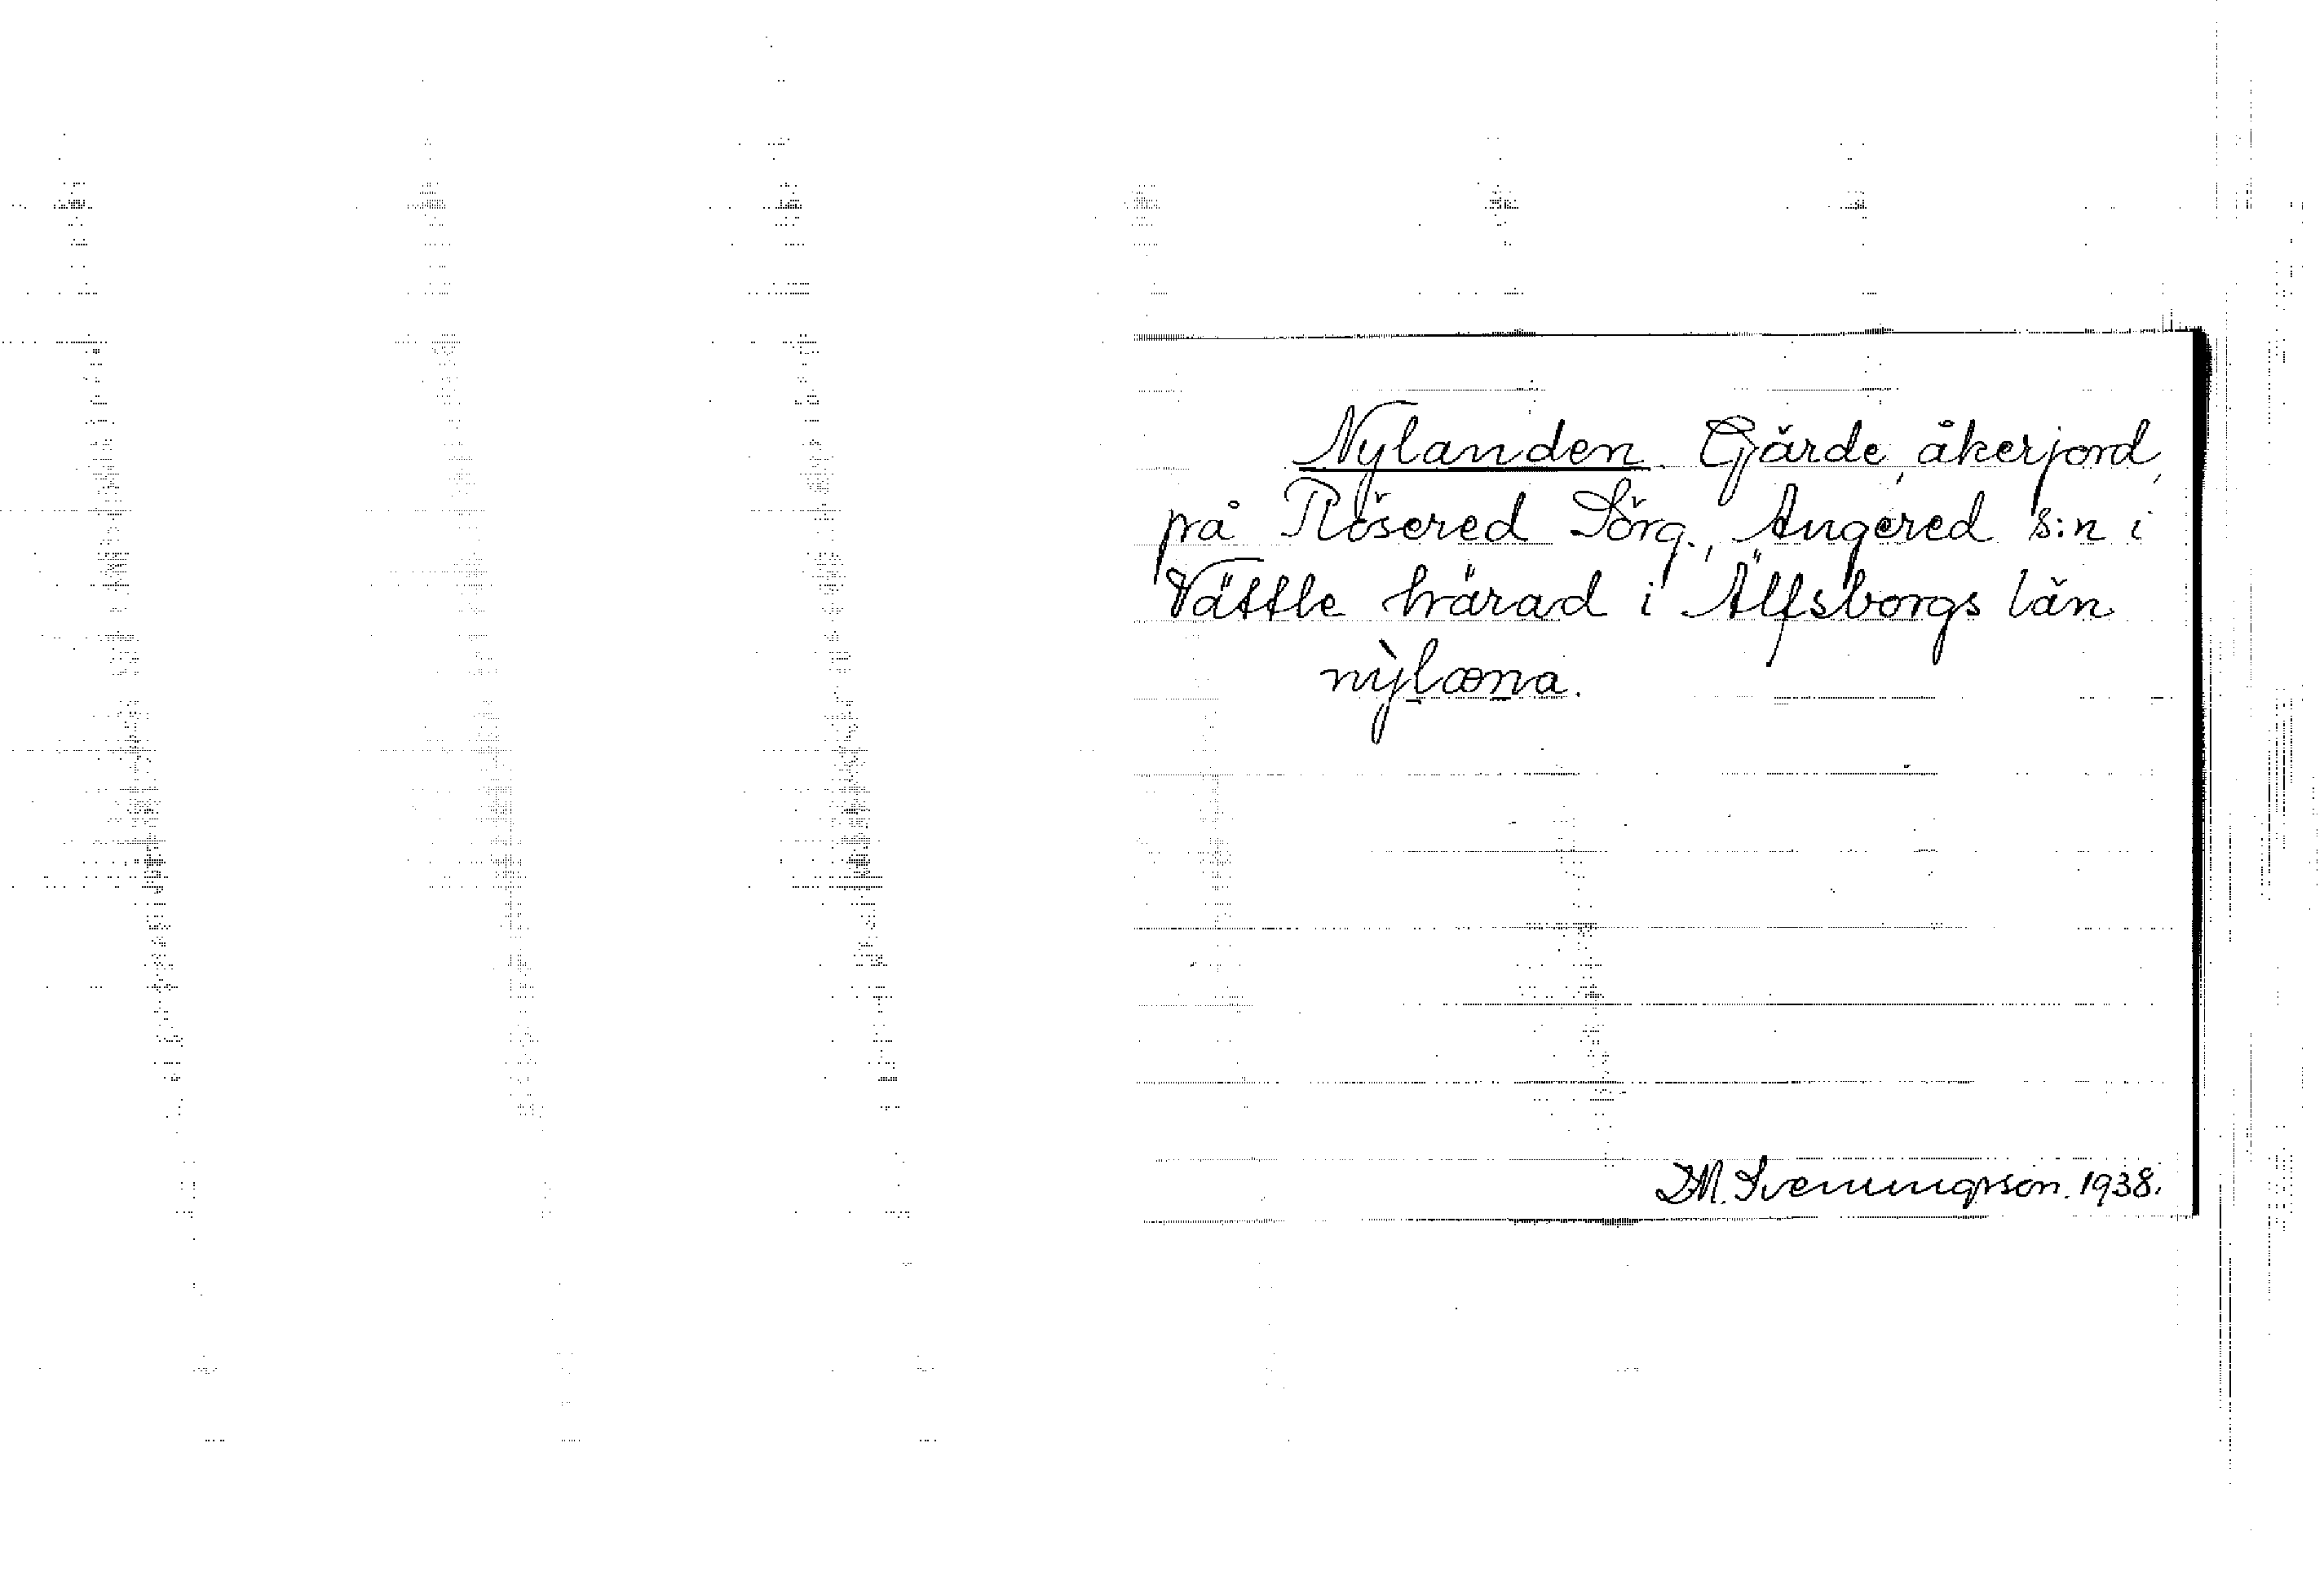 Nylanden. Gärde, åkerjord,
på Rösered Sörg., Angered s:n i
Vättle härad i Älfsborgs län
nỳlæna.
D.M. Svenningsson. 1938.